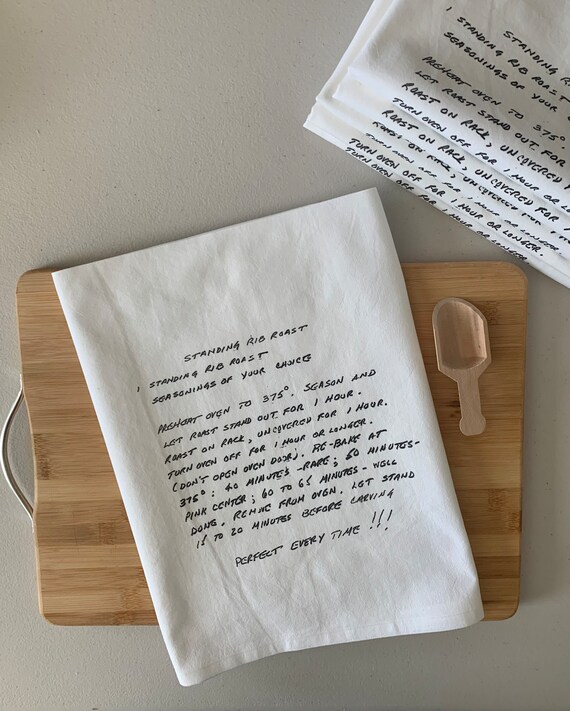 STANDING RIB ROAST
1 STANDING RIB ROAST
SEASONINGS OF YOUR CHOICE
PREHEAT OVEN TO 375°. SEASON AND
LET ROAST STAND OUT FOR 1 HOUR.
ROAST ON RACK, UNCOVERED FOR 1 HOUR.
TURN OVEN OFF FOR 1 HOUR OR LONGER.
(DON'T OPEN OVEN DOOR). RE-BAKE AT
375°: 40 MINUTES -RARE; 50 MINUTES-
PINK CENTER; 60 TO 65 MINUTES - WELL
DONE. REMOVE FROM OVEN. LET STAND
15 TO 20 MINUTES BEFORE CARVING
PERFECT EVERY TIME !!!
STANDING RI
1 STANDING RIB ROAST
SEASONINGS OF YOUR
PREHEAT OVEN TO 375°.
LET ROAST STAND OUT FOR
ROAST ON RACK, UNCOVERED
TURN OVEN OFF FOR 1 HOUR OR LO
ROAST ON RACK, UNCOVERED FOR 1
TURN OVEN OFF FOR 1 HOUR OR LONGER.